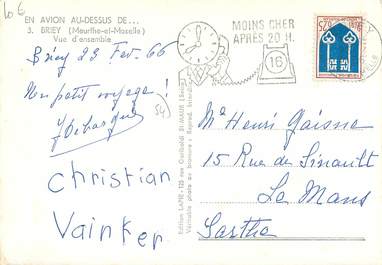 10 €
EN AVION AU-DESSUS DE...
3. BRIEY (Meurthe-et-Moselle)
Vue d'ensemble
Briey 23 Fev. 66
Un petit voyage!
Christian
Vainker
Edition LAPIE - 125 rue Garibaldi St-MAUR (Seine)
Véritable photo au bromure : Reprod. Interdite
MOINS CHER
APRÈS 20 H.
16
0,25
Mr Henri Gaisne
15 Rue de Sinault
Le Mans
Sarthe
54